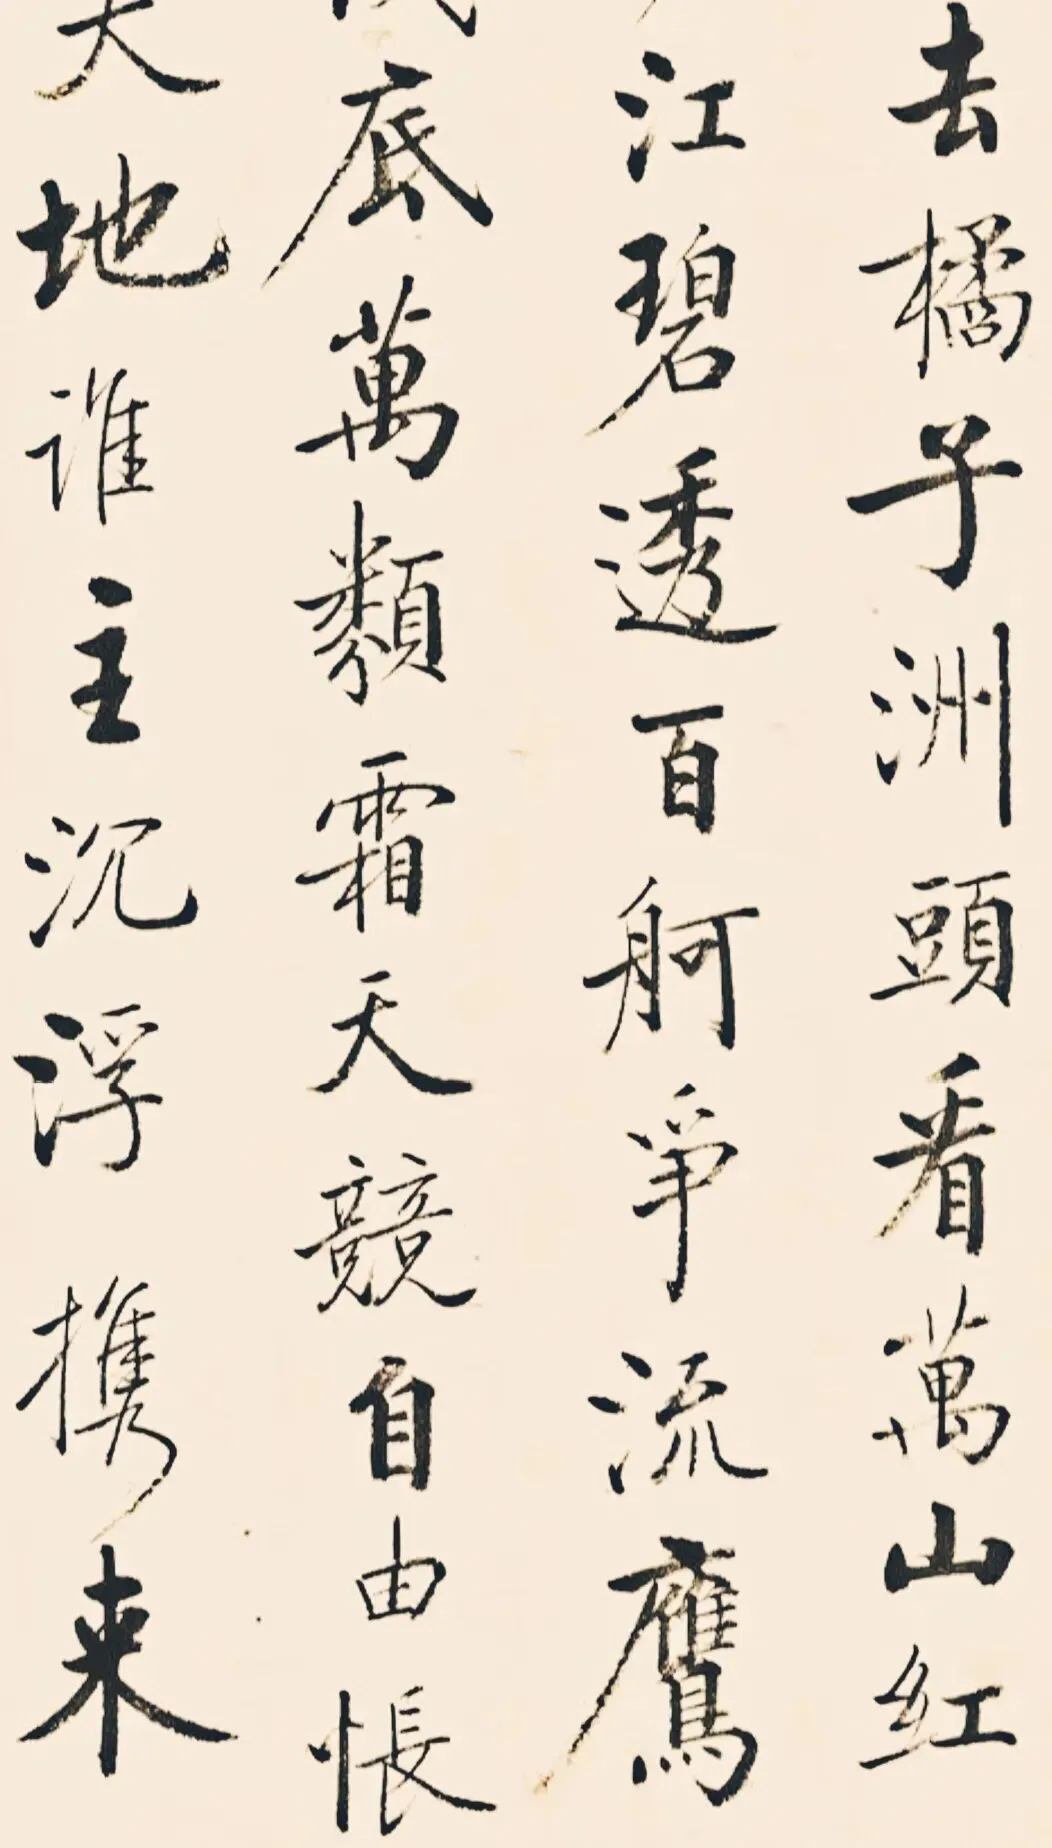 去橘子洲頭看萬山红
江碧透百舸爭流鷹
底萬類霜天競自由悵
大地谁主沉浮携来